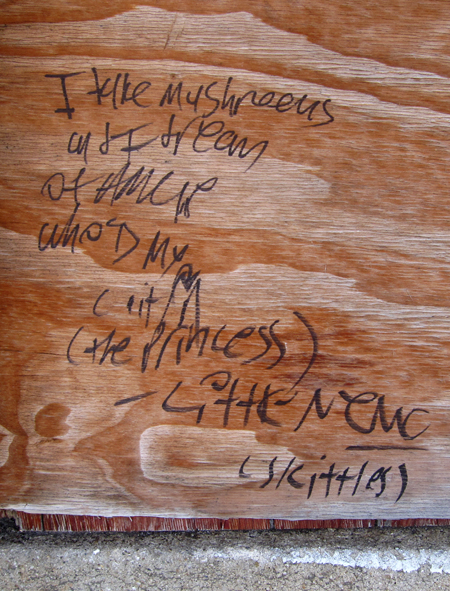 I take mushrooms
and I dream
of
who's my
(the Princess)
- Little Nemo
(skittles)